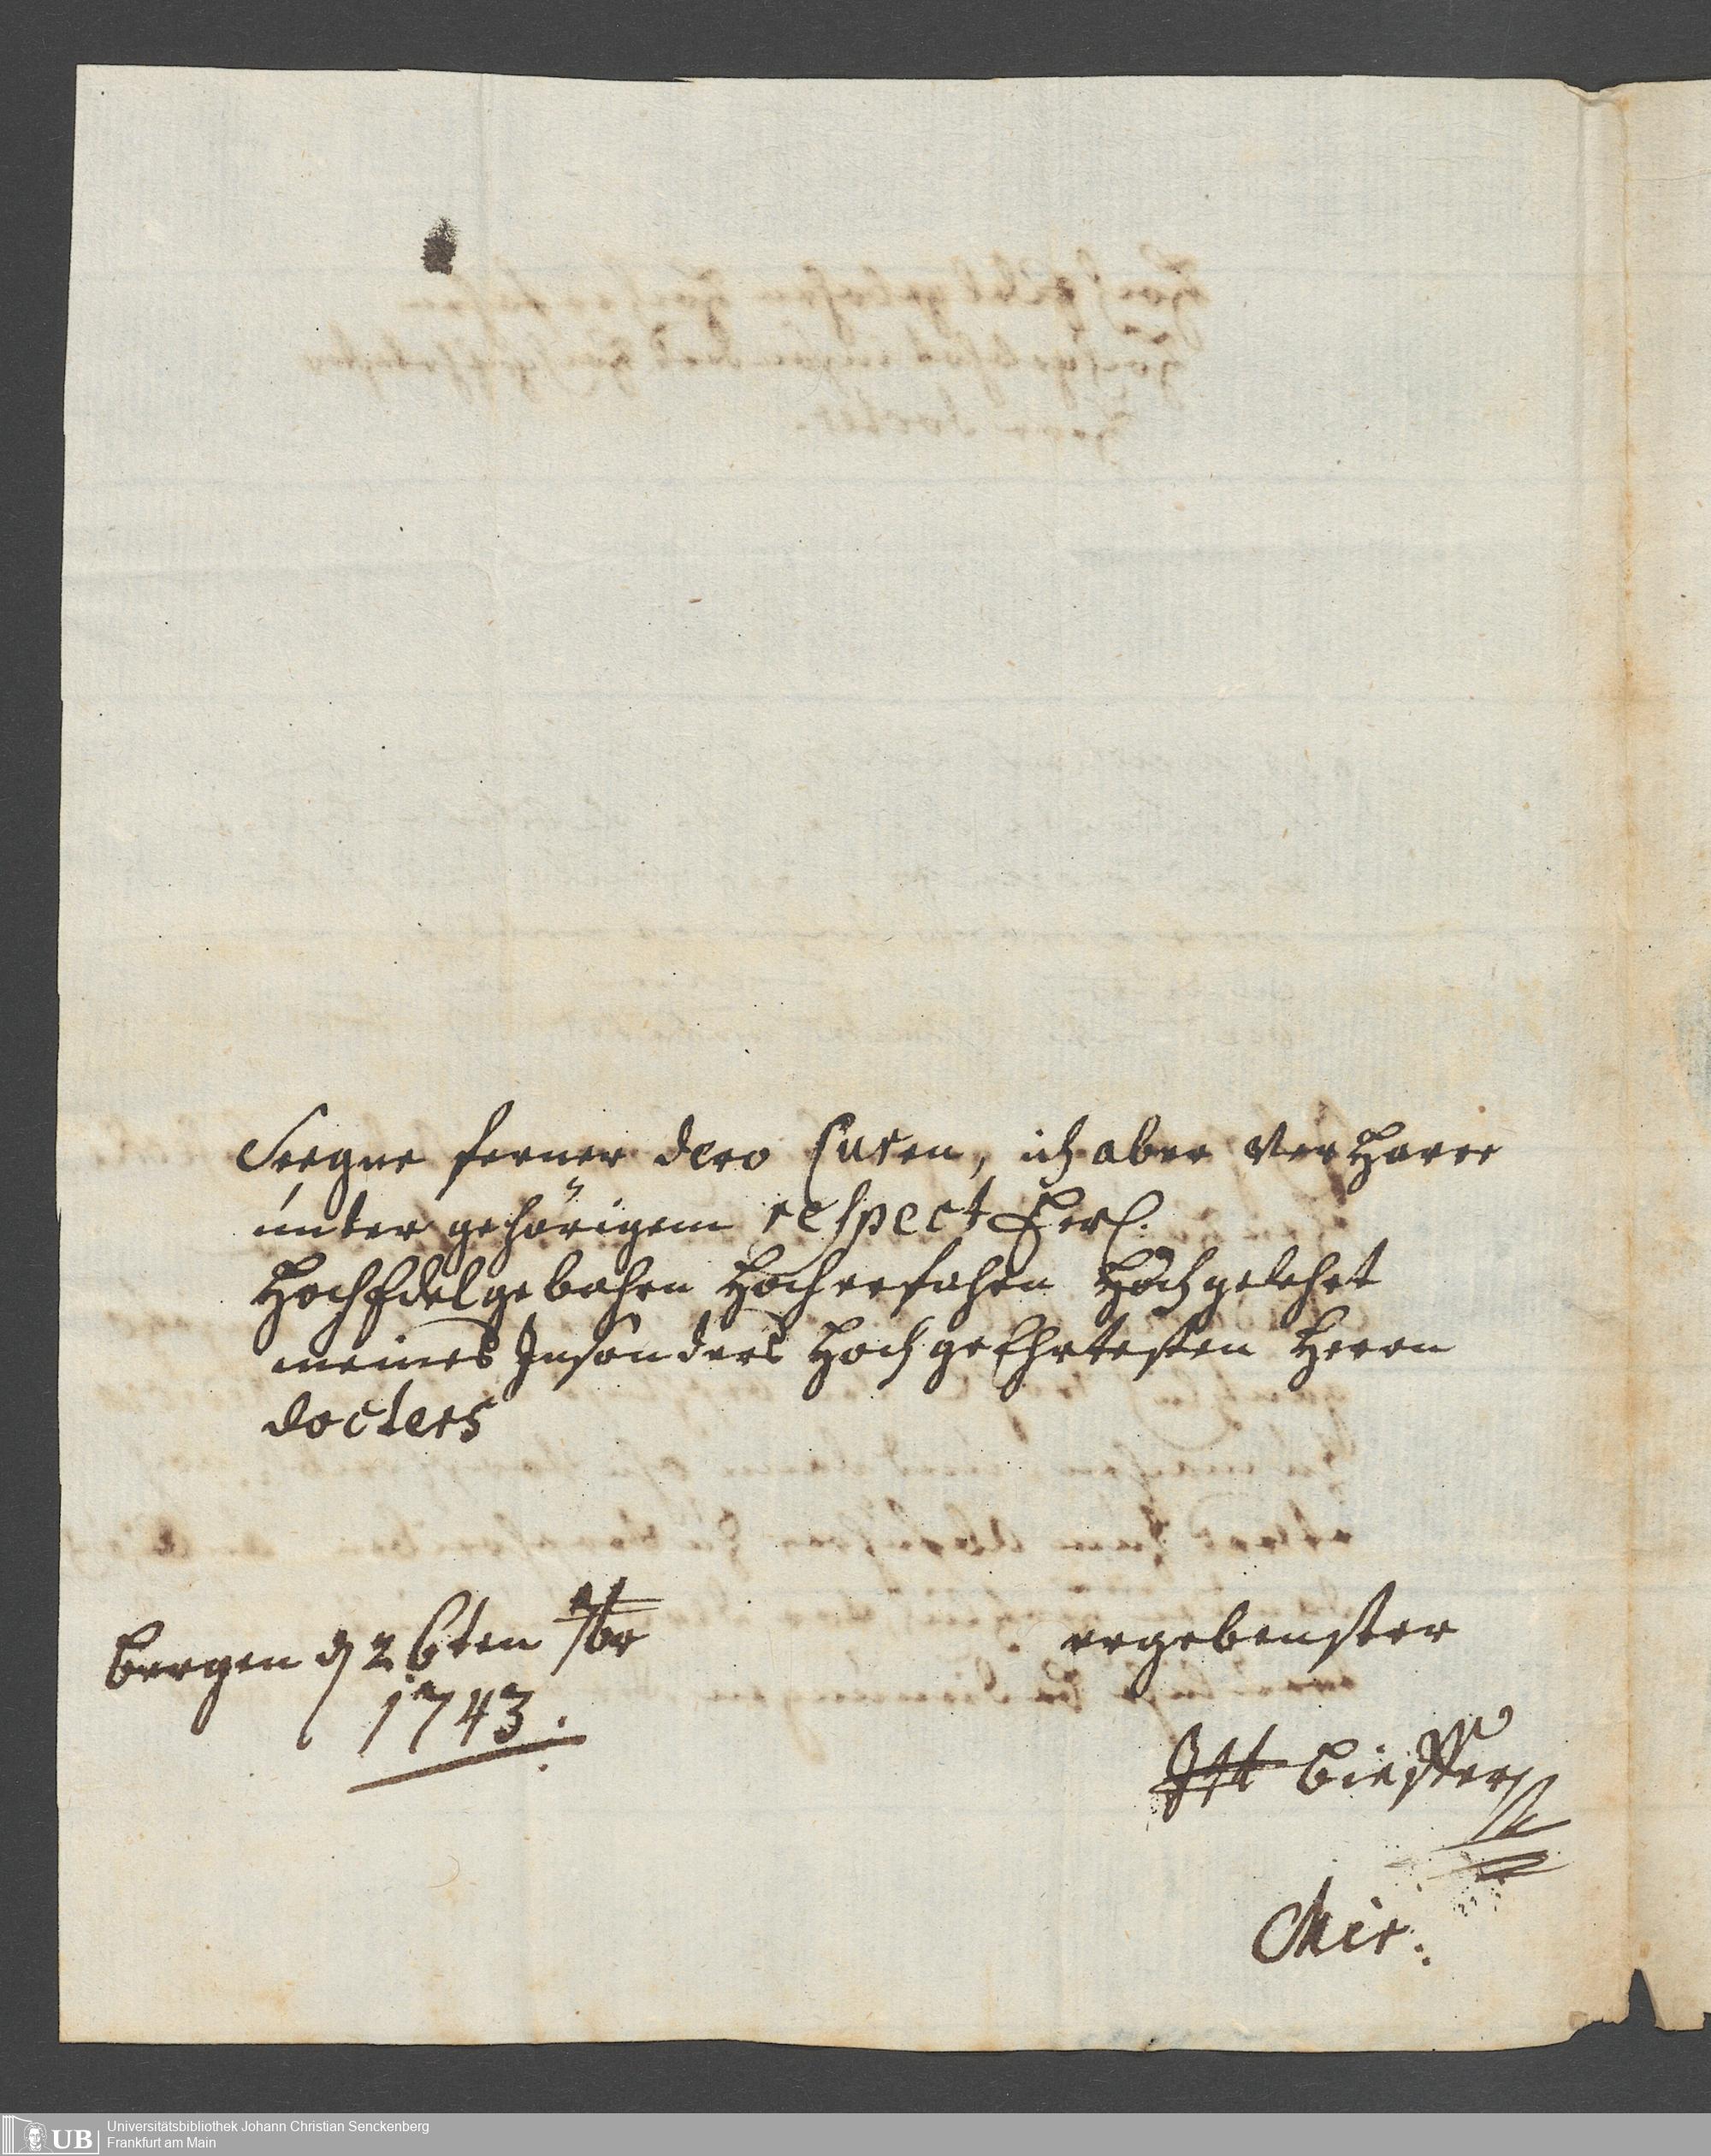 Seegne ferner dero Curen, ich aber verharre
unter gehörigem respect
HochEdelgebohrn Hocherfahrn Hochgelehrt
meines Insonders HochgeEhrtesten Herrn
docters
bergen d 26ten 7br
1743.
ergebenster
Chir.
UB
Universitätsbibliothek Johann Christian Senckenberg
Frankfurt am Main